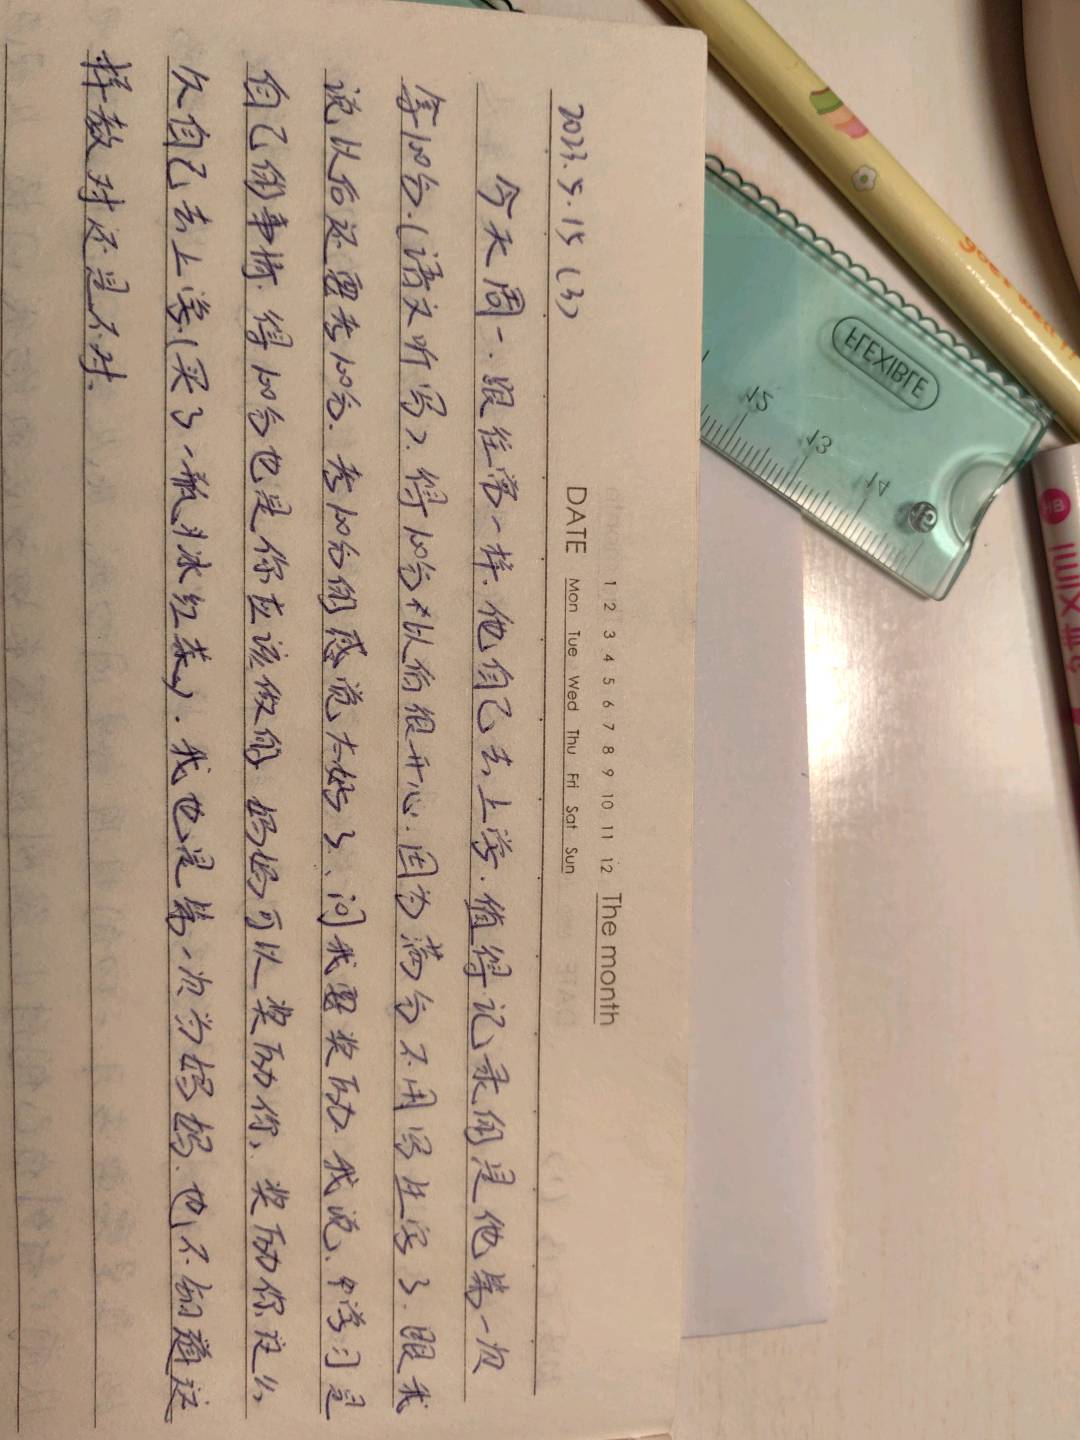 The month
1 2 3 4 5 6 7 8 9 10 11 12
DATE Mon Tue Wed Thu Fri Sat Sun
2023.5.15 (3)
今天周一.跟往常一样.他自己去上学.值得记录的是他第一次
拿100分.(语文听写).得100分所以他很开心.因为满分不用写生字了.跟我
说以后还要考100分.考100分的感觉太好了、问我要奖励.我说、中学习是
自己的事情.得100分也是你应该做的 妈妈可以奖励你、奖励你这么
久自己去上学(买了一瓶冰红茶).我也是第一次为妈妈.也不知道这
样教对还是不对.
FLEXIBLE
15
13
14
HB